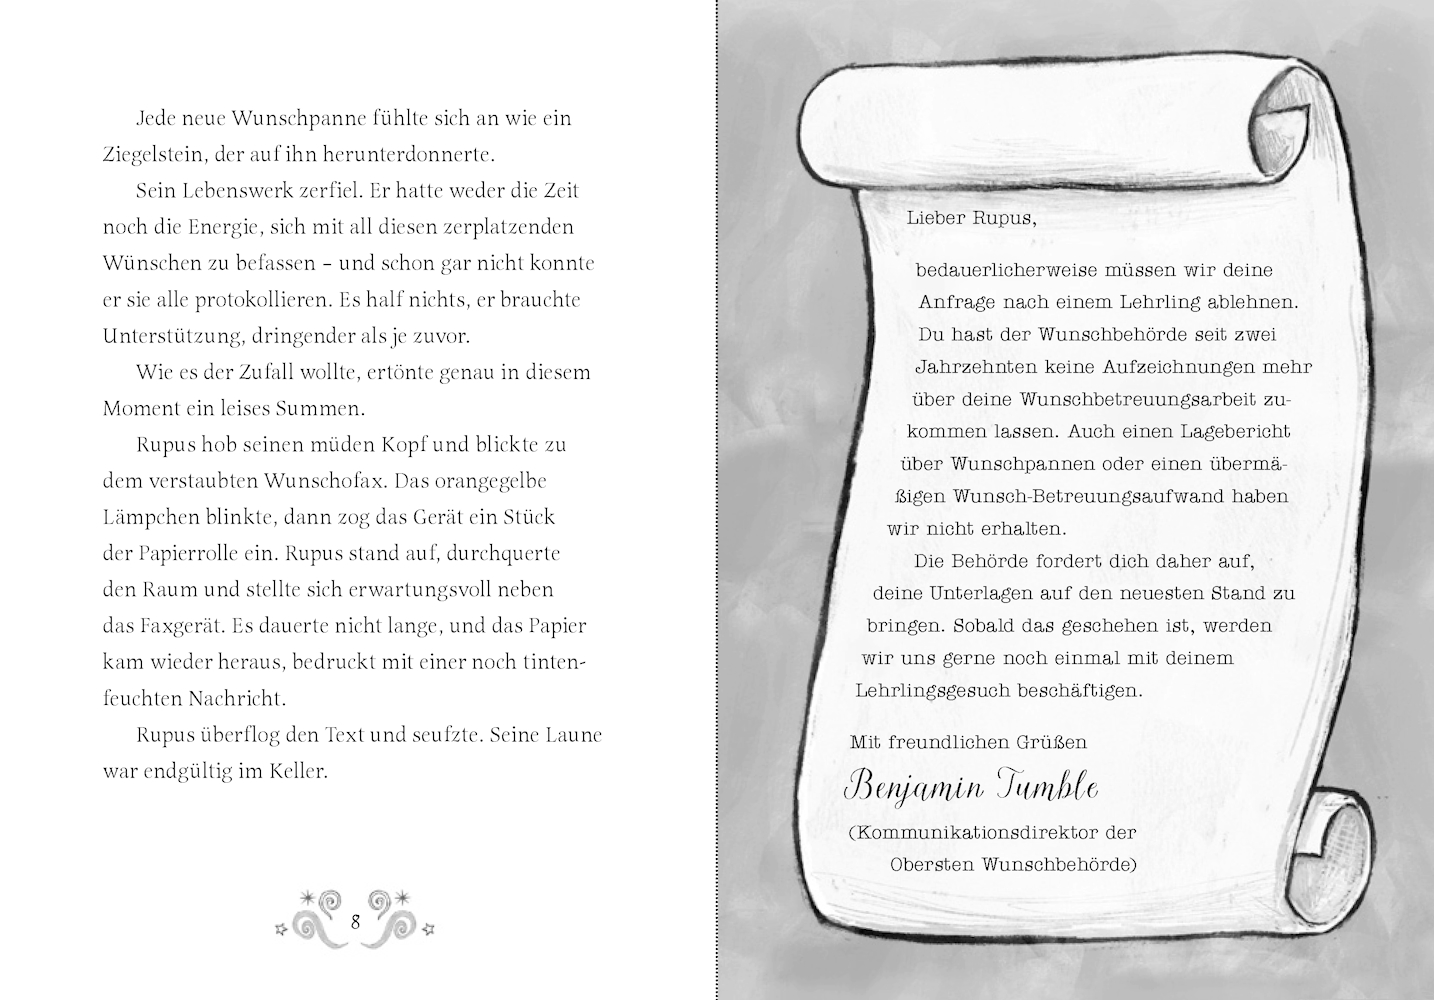 Jede neue Wunschpanne fühlte sich an wie ein
Ziegelstein, der auf ihn herunterdonnerte.
Sein Lebenswerk zerfiel. Er hatte weder die Zeit
noch die Energie, sich mit all diesen zerplatzenden
Wünschen zu befassen – und schon gar nicht konnte
er sie alle protokollieren. Es half nichts, er brauchte
Unterstützung, dringender als je zuvor.
Wie es der Zufall wollte, ertönte genau in diesem
Moment ein leises Summen.
Rupus hob seinen müden Kopf und blickte zu
dem verstaubten Wunschofax. Das orangegelbe
Lämpchen blinkte, dann zog das Gerät ein Stück
der Papierrolle ein. Rupus stand auf, durchquerte
den Raum und stellte sich erwartungsvoll neben
das Faxgerät. Es dauerte nicht lange, und das Papier
kam wieder heraus, bedruckt mit einer noch tinten-
feuchten Nachricht.
Rupus überflog den Text und seufzte. Seine Laune
war endgültig im Keller.
8
Lieber Rupus,
bedauerlicherweise müssen wir deine
Anfrage nach einem Lehrling ablehnen.
Du hast der Wunschbehörde seit zwei
Jahrzehnten keine Aufzeichnungen mehr
über deine Wunschbetreuungsarbeit zu-
kommen lassen. Auch einen Lagebericht
über Wunschpannen oder einen übermä-
ßigen Wunsch-Betreuungsaufwand haben
wir nicht erhalten.
Die Behörde fordert dich daher auf,
deine Unterlagen auf den neuesten Stand zu
bringen. Sobald das geschehen ist, werden
wir uns gerne noch einmal mit deinem
Lehrlingsgesuch beschäftigen.
Mit freundlichen Grüßen
Benjamin Tumble
(Kommunikationsdirektor der
Obersten Wunschbehörde)